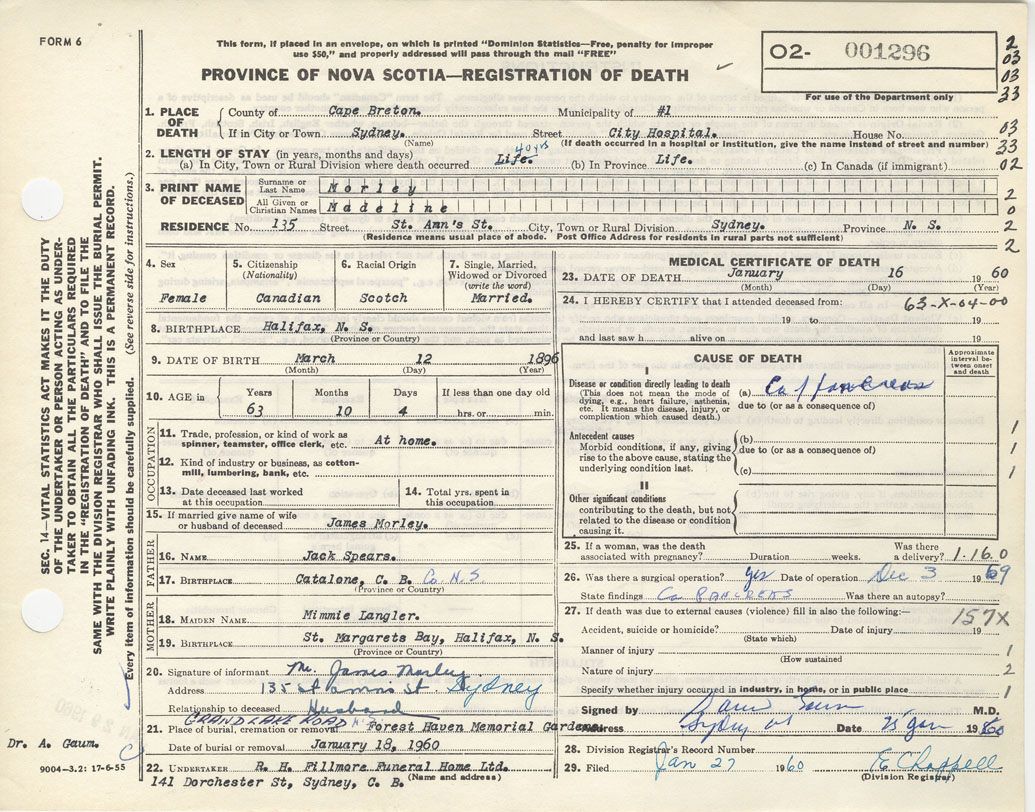 FORM 6
This form, if placed in an envelope, on which is printed "Dominion Statistics—Free, penalty for improper
use $50," and properly addressed will pass through the mail "FREE"
PROVINCE OF NOVA SCOTIA—REGISTRATION OF DEATH
O2- 001296
For use of the Department only
2
03
03
33
03
33
02
2
0
2
2
1. PLACE OF DEATH
County of Cape Breton. Municipality of #1
If in City or Town Sydney. Street City Hospital. House No.
(Name) (If death occurred in a hospital or institution, give the name instead of street and number)
2. LENGTH OF STAY (in years, months and days)
(a) In City, Town or Rural Division where death occurred Life. 40 yrs (b) In Province Life. (c) In Canada (if immigrant)
3. PRINT NAME OF DECEASED
Surname or Last Name Morley
All Given or Christian Names Madeline
RESIDENCE No. 135 Street St. Ann's St. City, Town or Rural Division Sydney. Province N. S.
(Residence means usual place of abode. Post Office Address for residents in rural parts not sufficient)
4. Sex
Female
5. Citizenship (Nationality)
Canadian
6. Racial Origin
Scotch
7. Single, Married, Widowed or Divorced (write the word)
Married.
8. BIRTHPLACE Halifax, N. S.
(Province or Country)
9. DATE OF BIRTH March 12 1896
(Month) (Day) (Year)
10. AGE in Years Months Days If less than one day old
63 10 4 hrs. or min.
OCCUPATION
11. Trade, profession, or kind of work as spinner, teamster, office clerk, etc. At home.
12. Kind of industry or business, as cotton-mill, lumbering, bank, etc.
13. Date deceased last worked at this occupation
14. Total yrs. spent in this occupation
15. If married give name of wife or husband of deceased James Morley.
FATHER
16. NAME Jack Spears.
17. BIRTHPLACE Catalone, C. B. Co. N.S
(Province or Country)
MOTHER
18. MAIDEN NAME Mimmie Langler.
19. BIRTHPLACE St. Margarets Bay, Halifax, N. S.
(Province or Country)
20. Signature of informant Mr. James Morley
Address 135 St Anns St. Sydney
Relationship to deceased Husband
GRAND LAKE ROAD
21. Place of burial, cremation or removal Forest Haven Memorial Gardens
Date of burial or removal January 18, 1960
22. UNDERTAKER R. H. Fillmore Funeral Home Ltd.
(Name and address)
141 Dorchester St, Sydney, C. B.
MEDICAL CERTIFICATE OF DEATH
23. DATE OF DEATH January 16 1960
(Month) (Day) (Year)
24. I HEREBY CERTIFY that I attended deceased from:
63-X-04-00
19 to 19
and last saw h alive on 19
CAUSE OF DEATH
Approximate interval between onset and death
I
Disease or condition directly leading to death
(This does not mean the mode of dying, e.g., heart failure, asthenia, etc. It means the disease, injury, or complication which caused death.)
(a) Ca of pancreas
due to (or as a consequence of)
Antecedent causes
Morbid conditions, if any, giving rise to the above cause, stating the underlying condition last.
(b)
due to (or as a consequence of)
(c)
1
1
1
II
Other significant conditions
contributing to the death, but not related to the disease or condition causing it.
25. If a woman, was the death associated with pregnancy? Duration weeks. Was there a delivery? 1-16.0
26. Was there a surgical operation? yes Date of operation Dec 3 1959
State findings Ca PANCREAS Was there an autopsy?
27. If death was due to external causes (violence) fill in also the following:—
157X
Accident, suicide or homicide? Date of injury 19
(State which)
Manner of injury 1
(How sustained)
Nature of injury 2
Specify whether injury occurred in industry, in home, or in public place 1
Signed by M.D.
Address Sydney Date 25 Jan 1960
28. Division Registrar's Record Number
29. Filed Jan 27 1960 E Chappell
(Division Registrar)
SEC. 14—VITAL STATISTICS ACT MAKES IT THE DUTY
OF THE UNDERTAKER OR PERSON ACTING AS UNDER-
TAKER TO OBTAIN ALL THE PARTICULARS REQUIRED
IN THE "REGISTRATION OF DEATH" AND FILE THE
SAME WITH THE DIVISION REGISTRAR WHO SHALL ISSUE THE BURIAL PERMIT.
WRITE PLAINLY WITH UNFADING INK. THIS IS A PERMANENT RECORD.
Every item of information should be carefully supplied. (See reverse side for instructions.)
Dr. A. Gaum.
9004-3.2: 17-6-55